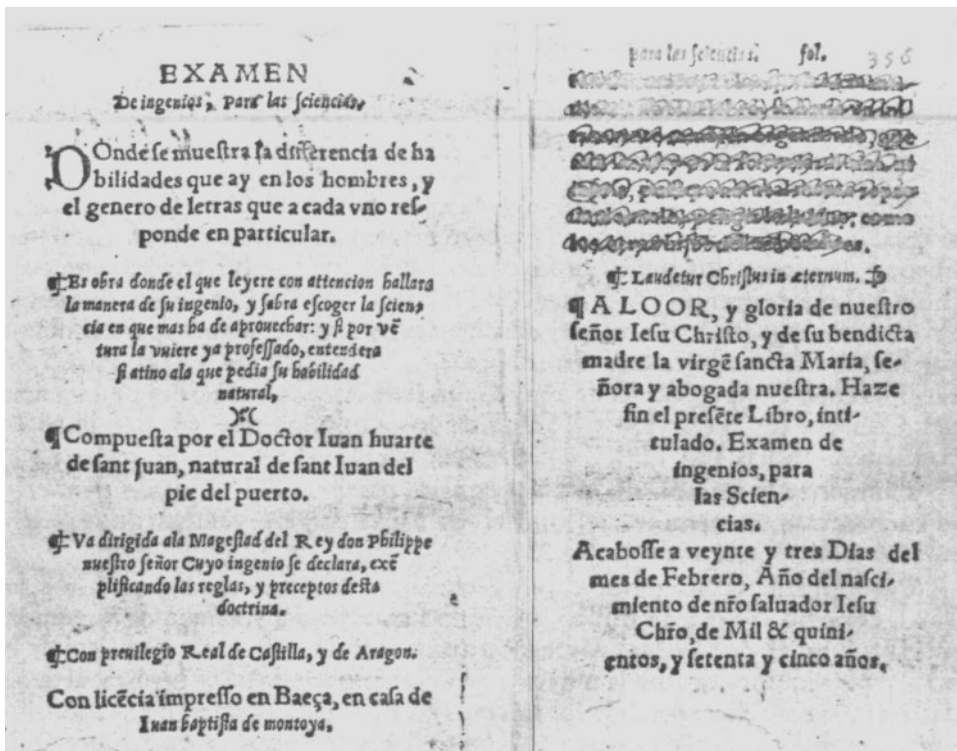 EXAMEN
De ingenios, Para las ſciencias.
DOnde se mueſtra la differencia de ha
bilidades que ay en los hombres, y
el genero de letras que a cada vno reſ-
ponde en particular.
Es obra donde el que leyere con attencion hallara
la manera de ſu ingenio, y ſabra eſcoger la ſcien,
cia en que mas ha de aprouechar: y ſi por vẽ
tura la vuiere ya profeſſado, entendera
ſi atino ala que pedia ſu habilidad
natural,
¶ Compueſta por el Doctor Iuan huarte
de ſant Juan, natural de ſant Iuan del
pie del puerto.
Va dirigida ala Mageſtad del Rey don Philippe
nueſtro ſeñor Cuyo ingenio ſe declara, exẽ
plificando las reglas, y preceptos deſta
doctrina.
Con preuilegio Real de Caſtilla, y de Aragon.
Con licẽcia impreſſo en Baeça, en caſa de
Iuan baptiſta de montoya.
para las ſciencias. fol. 356
que
como
Laudetur Chriſtus in æternum.
¶ A LOOR, y gloria de nueſtro
ſeñor Ieſu Chriſto, y de ſu bendicta
madre la virgẽ ſancta Maria, ſe-
ñora y abogada nueſtra. Haze
fin el preſẽte Libro, inti-
tulado. Examen de
ingenios, para
las Scien-
cias.
Acaboſſe a veynte y tres Dias del
mes de Febrero, Año del naſci-
miento de nr̃o ſaluador Ieſu
Chr̃o, de Mil & quini-
entos, y ſetenta y cinco años.